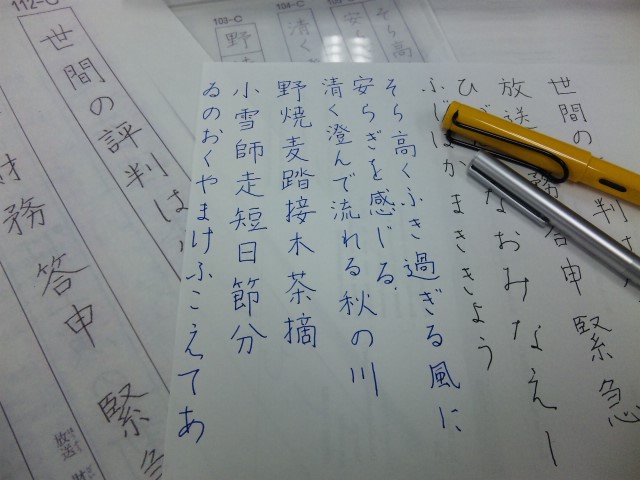 世間の
判
放送
務答申 緊急
ひ
なおみなえし
ふじばかまききょう
そら高くふき過ぎる風に
安らぎを感じる
清く澄んで流れる秋の川
野焼麦踏接木茶摘
小雪師走短日節分
ゐのおくやまけふこえてあ
103-C
野
104-C
清く
安ら
そら高
112-C
世間の評判は
財務答申 緊急
放送